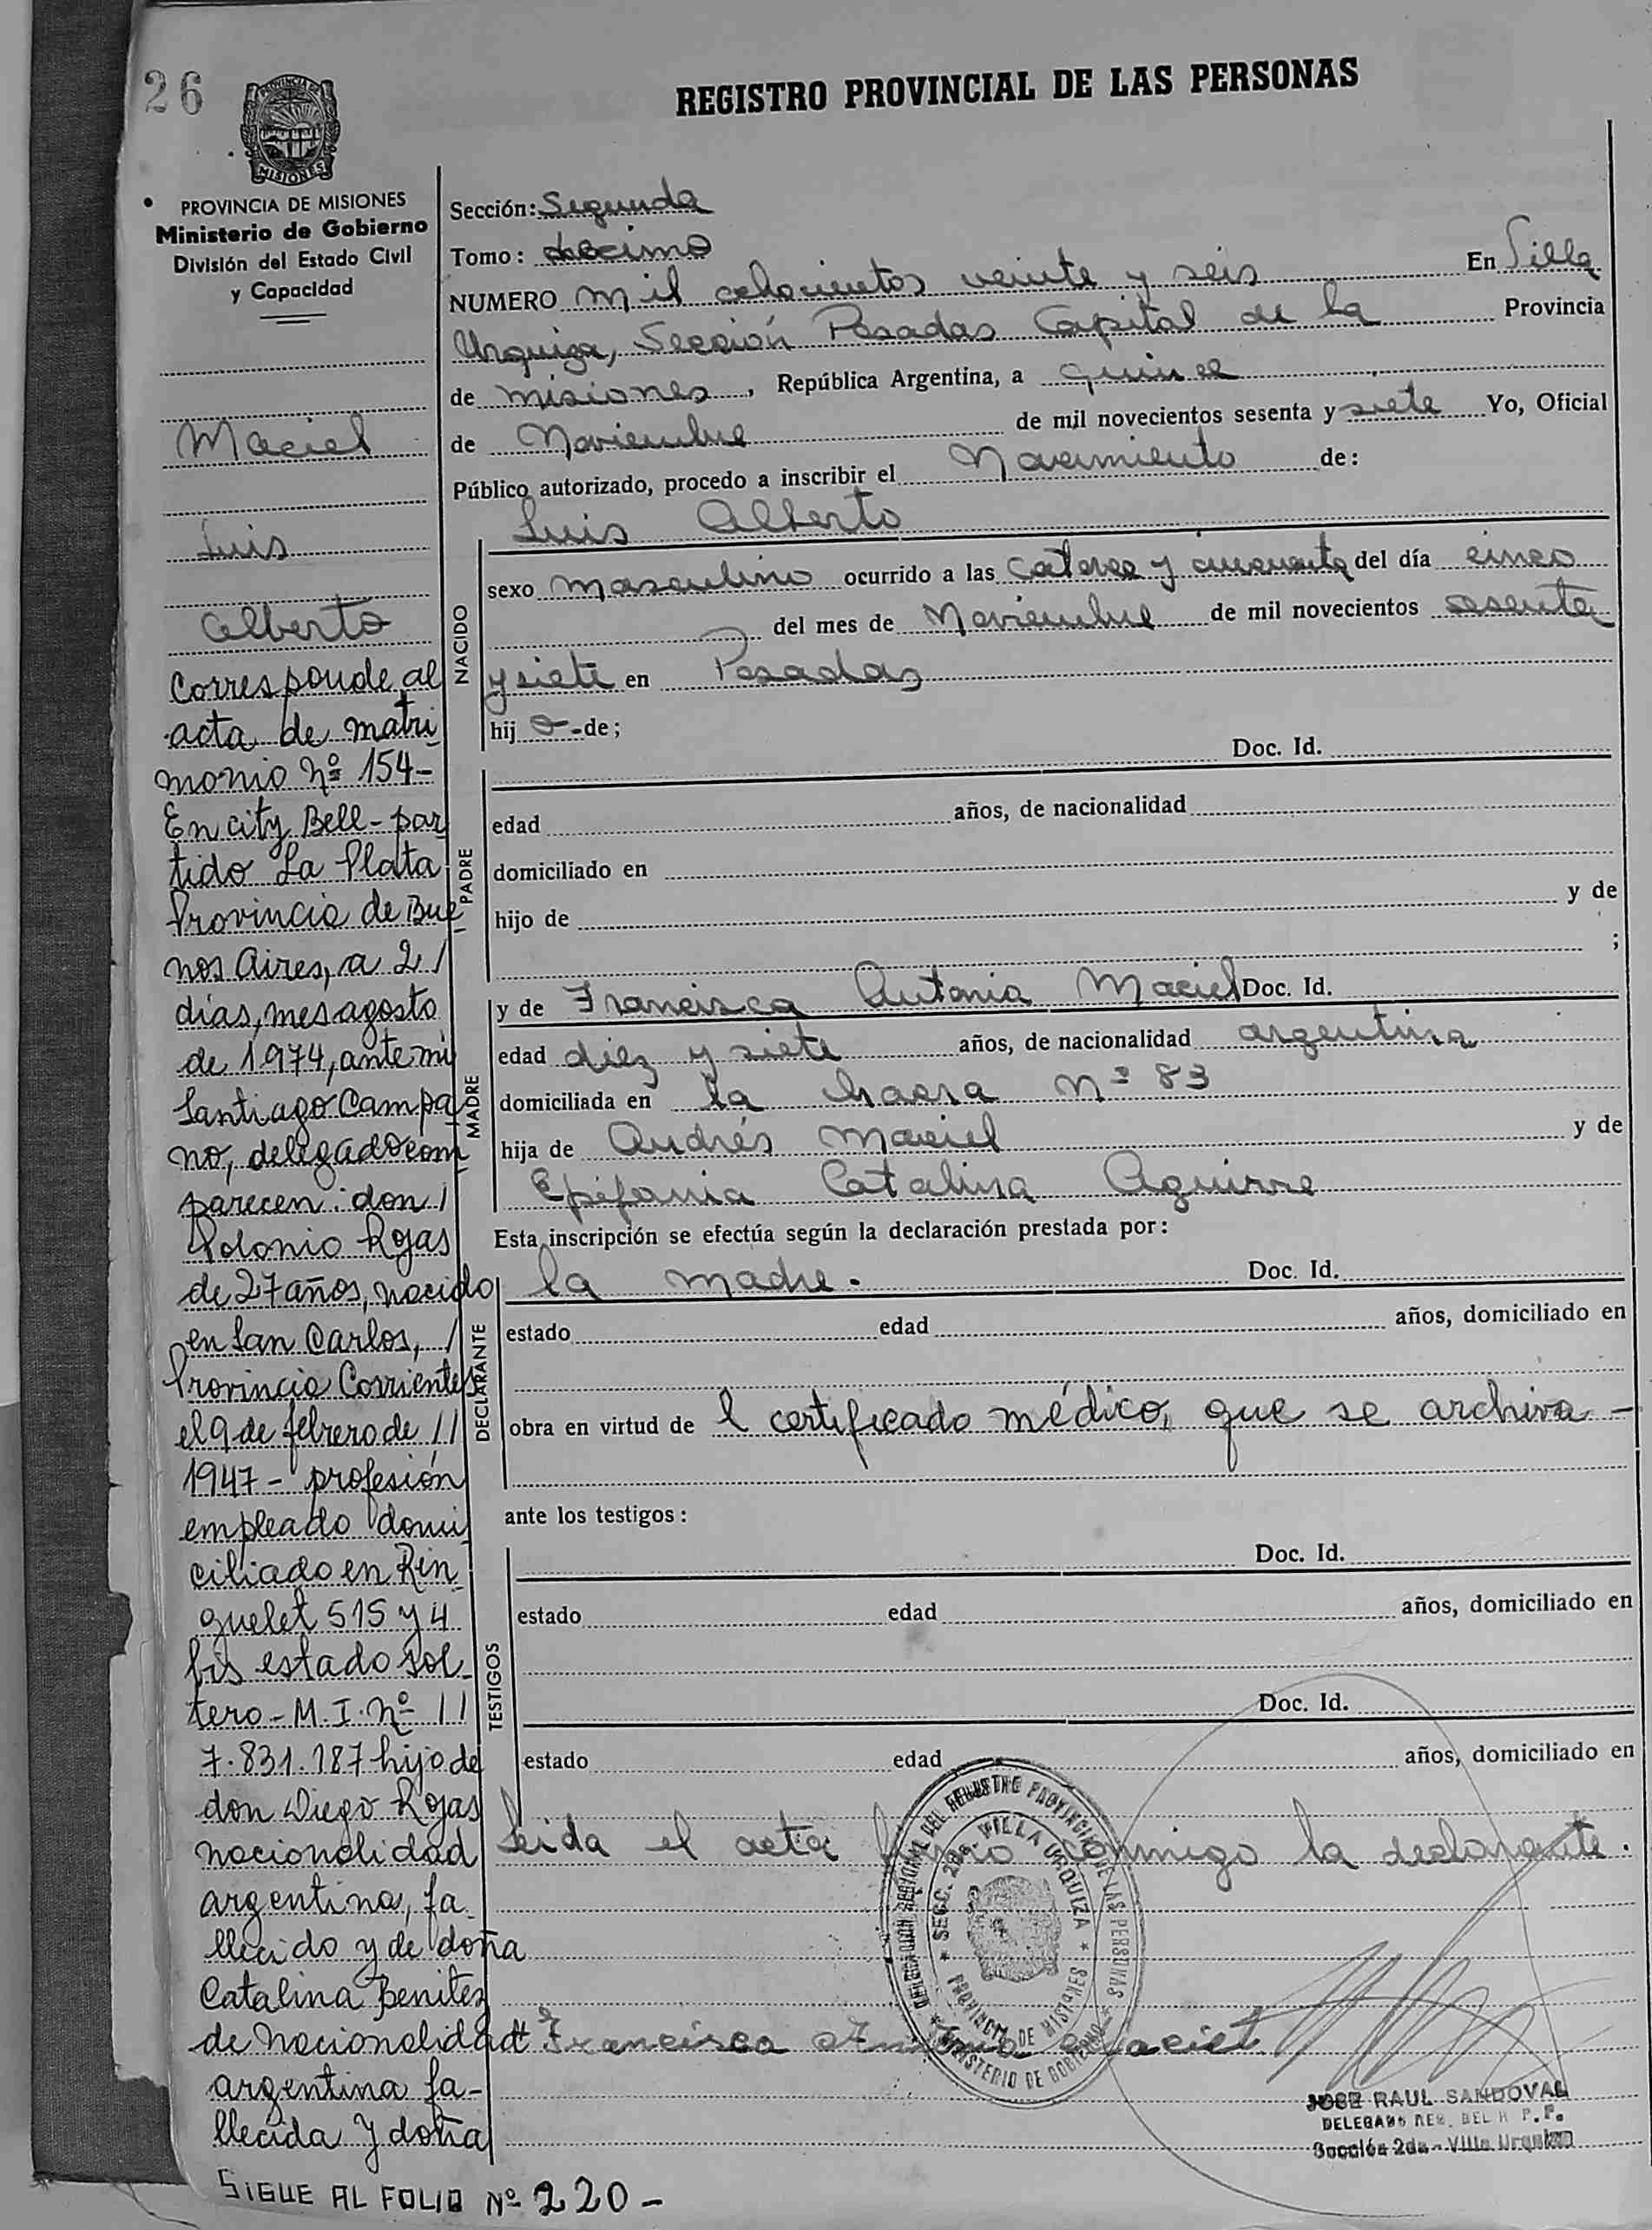 26
REGISTRO PROVINCIAL DE LAS PERSONAS
PROVINCIA DE
MISIONES
PROVINCIA DE MISIONES
Ministerio de Gobierno
División del Estado Civil
y Capacidad
Maciel
Luis
Alberto
Corresponde al
acta de matri
monio nº 154-
En city Bell - par
tido La Plata
Provincia de Bue
nos Aires, a 21
días, mes agosto
de 1974, ante mi
Santiago Campa
no, delegado com
parecen: don /
Polonio Rojas
de 27 años, nacido
en San Carlos, /
Provincia Corrientes
el 9 de febrero de //
1947 - profesión
empleado domi
ciliado en Rin
guelet 515 y 4
bis estado sol
tero - M. I. nº //
7.831.187 hijo de
don Diego Rojas
nacionalidad
argentina, fa
llecido y de doña
Catalina Benitez
de nacionalidad
argentina fa-
llecida y doña
SIGUE AL FOLIO Nº 220-
Sección: Segunda
Tomo: decimo
NUMERO mil ochocientos veinte y seis En Villa
Urquiza, Sección Posadas Capital de la Provincia
de misiones, República Argentina, a quince
de Noviembre de mil novecientos sesenta y siete Yo, Oficial
Público autorizado, procedo a inscribir el Nacimiento de:
NACIDO
Luis Alberto
sexo masculino ocurrido a las catorce y cincuenta del día cinco
del mes de Noviembre de mil novecientos sesenta
y siete en Posadas
hij o - de;
PADRE
Doc. Id.
edad años, de nacionalidad
domiciliado en
hijo de y de
;
MADRE
y de Francisca Antonia Maciel Doc. Id.
edad diez y siete años, de nacionalidad argentina
domiciliada en la chacra nº 83
hija de Andrés Maciel y de
Epifania Catalina Aguirre
Esta inscripción se efectúa según la declaración prestada por:
DECLARANTE
la madre. Doc. Id.
estado edad años, domiciliado en
obra en virtud de l certificado médico, que se archiva -
ante los testigos:
TESTIGOS
Doc. Id.
estado edad años, domiciliado en
Doc. Id.
estado edad años, domiciliado en
Leida el acta conmigo la declarante.
DELEGACION REGIONAL DEL REGISTRO PROVINCIAL DE LAS PERSONAS
MINISTERIO DE GOBIERNO
SECC. 2da. VILLA URQUIZA
PROVINCIA DE MISIONES
Francisca Antonia Maciel
JOSE RAUL SANDOVAL
DELEGADO REG. DEL R. P. P.
Sección 2da - Villa Urquiza